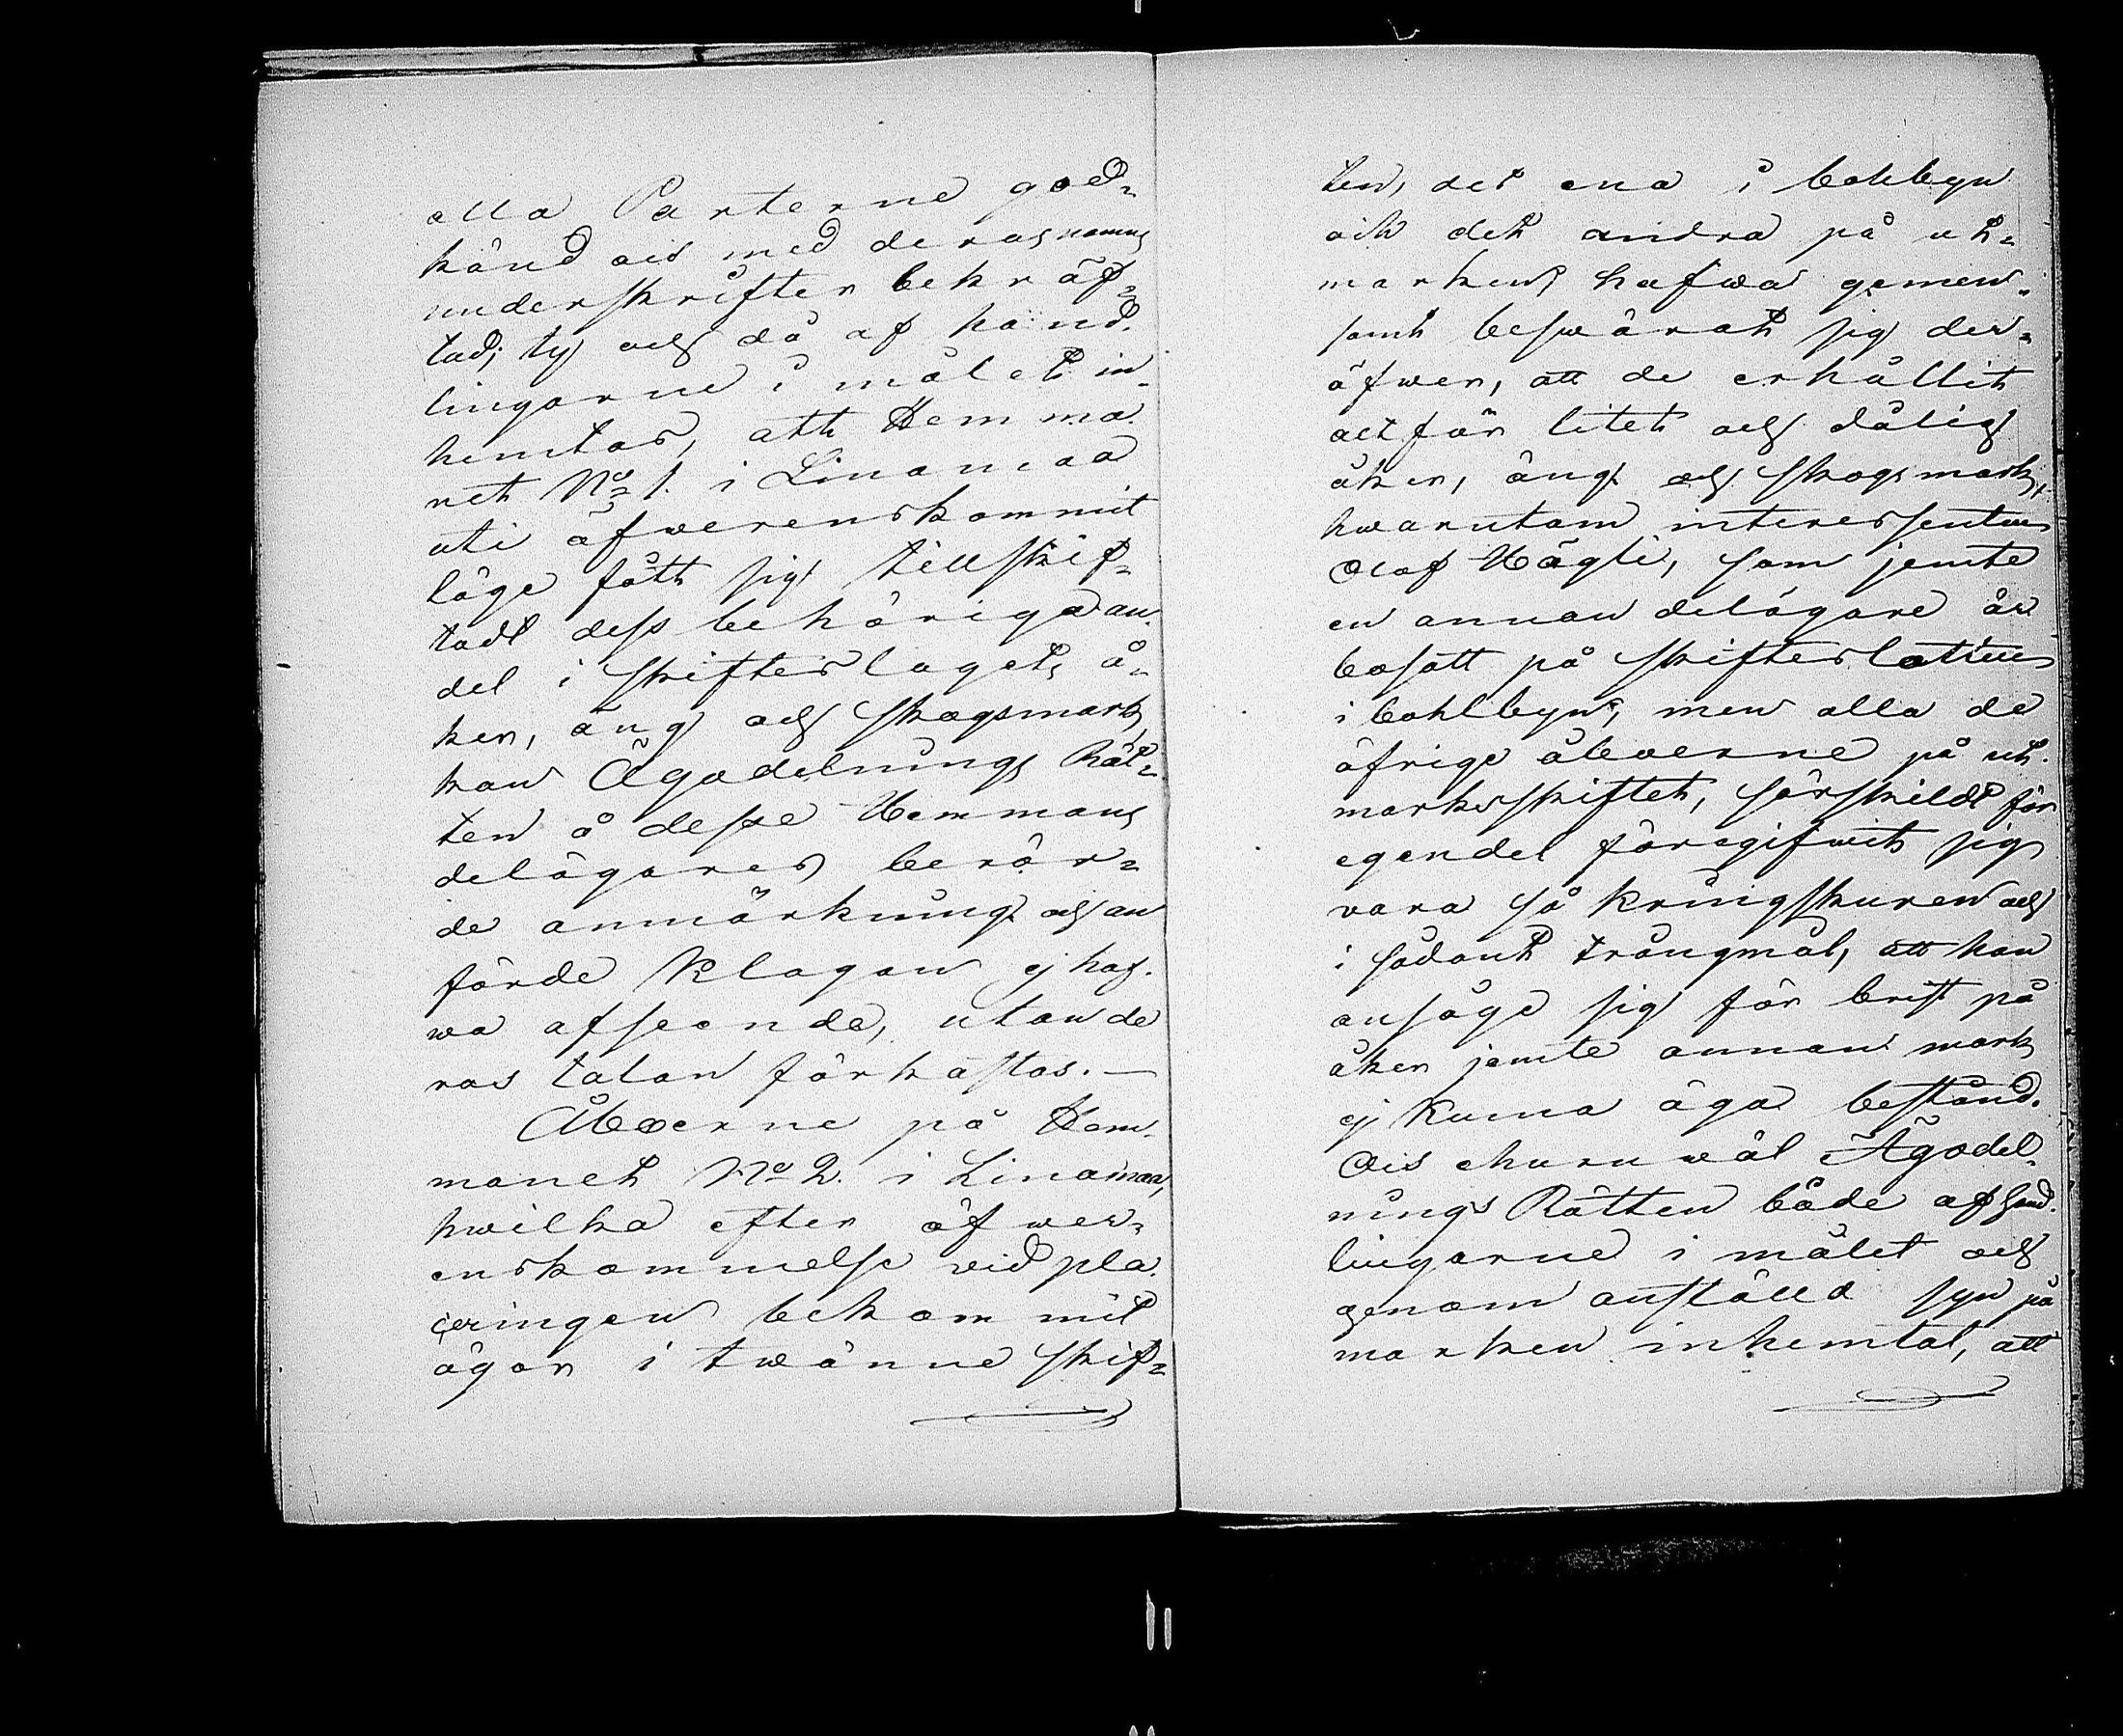 alla Parterne god-
känd ock med deras namns
underskrifter bekräf-
tad; ty och då af hand-
lingarne i målet in-
hemtas, att Hemma
net No 1. i Linamaa
uti öfwerenskommit
läge fått sig tillskif-
tadt dess behöriga an-
del i Skifteslagets å-
ker, äng och skogsmark,
kan Ägodelnings Rät-
ten å desse Hemmans
delägares berör-
de anmärkning och an
förde Klagan ej haf-
wa afseende, utan de
ras talan förkastas. —
Åboerne på Hem-
manet No 2. i Linamaa,
hwilka efter öfwer-
enskommelse vid pla-
ceringen bekommit
ägor i twänne skif-
ten, det ena i bolbyn
och det andra på ut-
marken hafwa gemen-
samt beswärat sig der-
öfwer, att de erhållit
altför litet och dålig
åker, äng och skogsmark,
hwarutom interessenten
Olof Hägli, som jemte
en annan delägare är
bosatt på skifteslotten
i bohlbyn, men alla de
öfrige åboerne på ut-
marksskiftet, särskildt för
egendel föregifwit sig
vara så kringskuren och
i sådant trångmål, att han
ansåge sig för brist på
åker jemte annan mark
ej kunna äga bestånd.
Och ehuru wäl Ägodel-
nings Rätten både af hand-
lingarne i målet och
genom anställd syn på
marken inhemtat, att